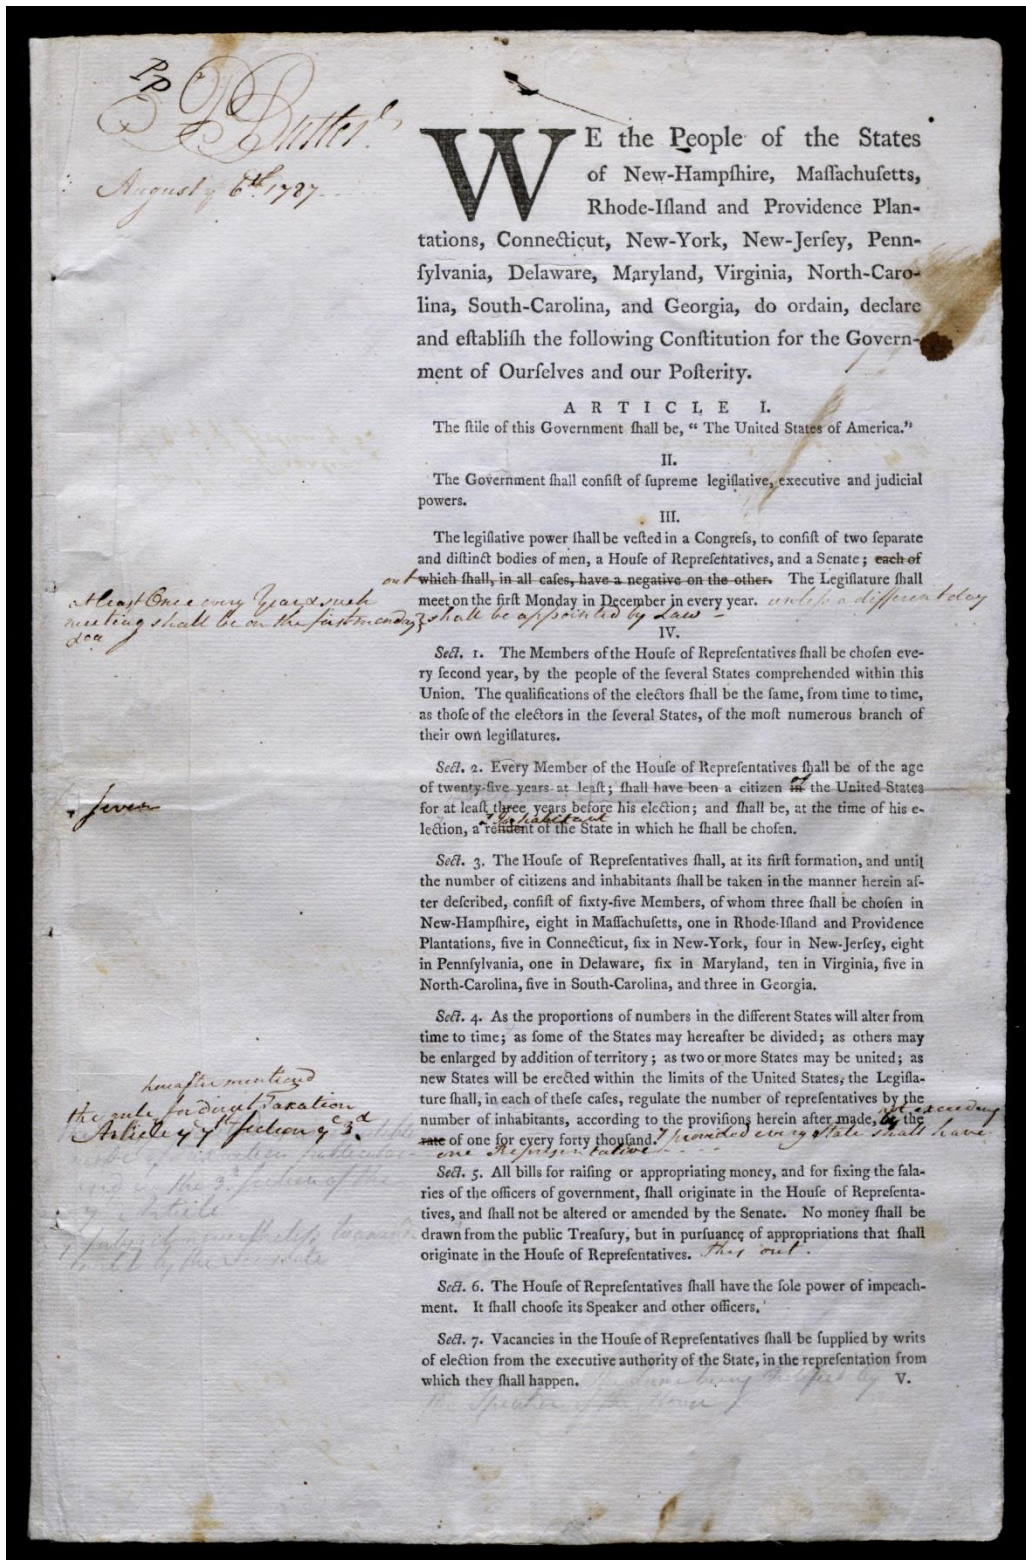 PP
P Butler
August y 6th. 1787
WE the People of the States
of New-Hampſhire, Maſſachuſetts,
Rhode-Iſland and Providence Plan-
tations, Connecticut, New-York, New-Jerſey, Penn-
ſylvania, Delaware, Maryland, Virginia, North-Caro-
lina, South-Carolina, and Georgia, do ordain, declare
and eſtabliſh the following Conſtitution for the Govern-
ment of Ourſelves and our Poſterity.
ARTICLE I.
The ſtile of this Government ſhall be, “ The United States of America.”
II.
The Government ſhall conſiſt of ſupreme legiſlative, executive and judicial
powers.
III.
The legiſlative power ſhall be veſted in a Congreſs, to conſiſt of two ſeparate
and diſtinct bodies of men, a Houſe of Repreſentatives, and a Senate; each of
out which ſhall, in all caſes, have a negative on the other. The Legiſlature ſhall
meet on the firſt Monday in December in every year. unless a different day
shall be appointed by Law –
at least Once every Year & such
meeting shall be on the first monday
IV.
Sect. 1. The Members of the Houſe of Repreſentatives ſhall be choſen eve-
ry ſecond year, by the people of the ſeveral States comprehended within this
Union. The qualifications of the electors ſhall be the ſame, from time to time,
as thoſe of the electors in the ſeveral States, of the moſt numerous branch of
their own legiſlatures.
Sect. 2. Every Member of the Houſe of Repreſentatives ſhall be of the age
of twenty-five years at leaſt; ſhall have been a citizen in of the United States
seven
for at leaſt three years before his election; and ſhall be, at the time of his e-
Inhabitant
lection, a reſident of the State in which he ſhall be choſen.
Sect. 3. The Houſe of Repreſentatives ſhall, at its firſt formation, and until
the number of citizens and inhabitants ſhall be taken in the manner herein af-
ter deſcribed, conſiſt of ſixty-five Members, of whom three ſhall be choſen in
New-Hampſhire, eight in Maſſachuſetts, one in Rhode-Iſland and Providence
Plantations, five in Connecticut, ſix in New-York, four in New-Jerſey, eight
in Pennſylvania, one in Delaware, ſix in Maryland, ten in Virginia, five in
North-Carolina, five in South-Carolina, and three in Georgia.
Sect. 4. As the proportions of numbers in the different States will alter from
time to time; as ſome of the States may hereafter be divided; as others may
be enlarged by addition of territory; as two or more States may be united; as
new States will be erected within the limits of the United States, the Legiſla-
ture ſhall, in each of theſe caſes, regulate the number of repreſentatives by the
number of inhabitants, according to the proviſions herein after made, by the
not exceeding
rate of one for every forty thouſand. provided every State shall have
one Representative
hereafter mentioned
the rule for direct Taxation
Article y 7th section y 3d
Sect. 5. All bills for raiſing or appropriating money, and for fixing the ſala-
ries of the officers of government, ſhall originate in the Houſe of Repreſenta-
tives, and ſhall not be altered or amended by the Senate. No money ſhall be
drawn from the public Treaſury, but in purſuance of appropriations that ſhall
originate in the Houſe of Repreſentatives. this out.
Sect. 6. The Houſe of Repreſentatives ſhall have the ſole power of impeach-
ment. It ſhall chooſe its Speaker and other officers.
Sect. 7. Vacancies in the Houſe of Repreſentatives ſhall be ſupplied by writs
of election from the executive authority of the State, in the repreſentation from
which they ſhall happen.
the Speaker of the House
V.